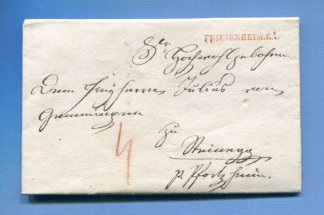 FRIESENHEIM R.1.
Sr Hochwohlgeboren
Dem Freyherrn Julius von
Gemmingen
4
zu
Steinegg
p. Pforzheim.